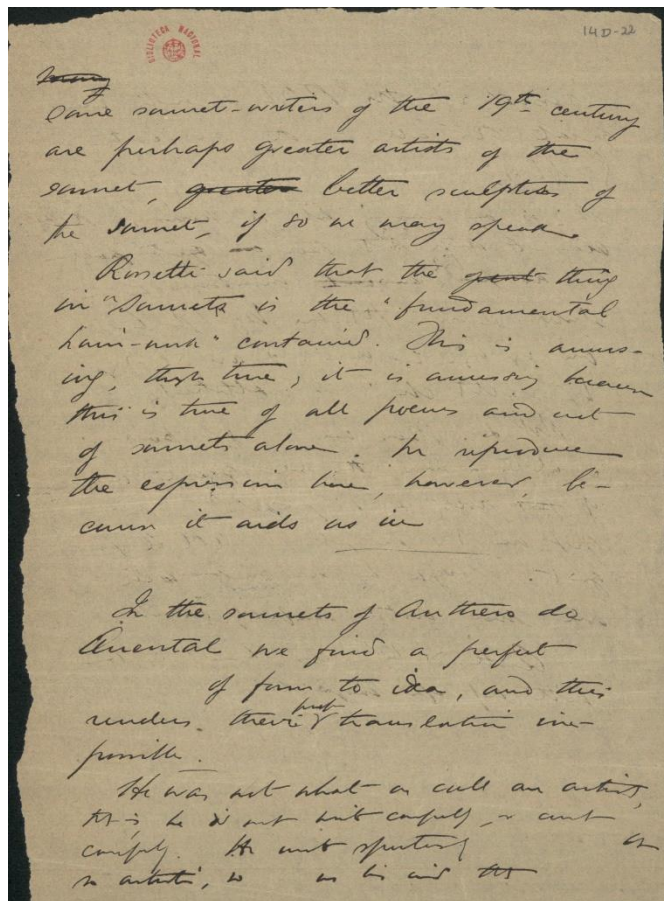 BIBLIOTECA NACIONAL
14D-22
many
Some sonnet-writers of the 19th century
are perhaps greater artists of the
sonnet, greater better sculptors of
the sonnet, if so we may speak.
Rossetti said that the great thing
in "sonnets is the "fundamental
brain-work" contained. This is amus-
ing, though true; it is amusing because
this is true of all poems and not
of sonnets alone. We reproduce
the expression here, however, be-
cause it aids us in
In the sonnets of Anthero do
Quental we find a perfect
of form to idea, and this
renders their perf translation im-
possible.
He was not what we call an artist,
that is he did not write carefully, or
carefully. He
so artistic, as his mind